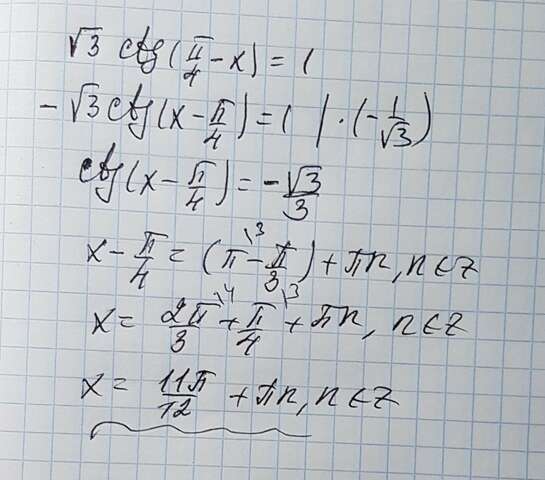 √3 ctg(π/4 - x) = 1
- √3 ctg(x - π/4) = 1 | · (-1/√3)
ctg(x - π/4) = - √3/3
x - π/4 = (π\3 - π/3) + πn, n ∈ z
x = 2π/3\4 + π/4\3 + πn, n ∈ z
x = 11π/12 + πn, n ∈ z